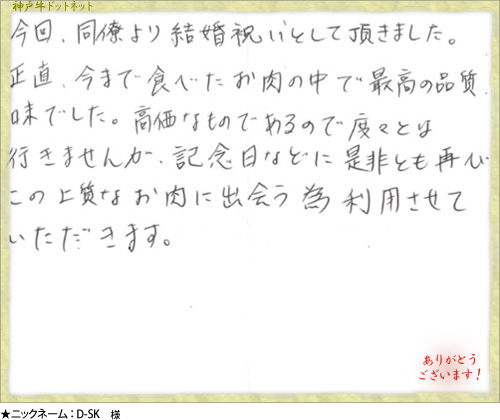 神戸牛ドットネット
今回、同僚より結婚祝いとして頂きました。
正直、今まで食べたお肉の中で最高の品質、
味でした。高価なものであるので度々とは
行きませんが、記念日などに是非とも再び
この上質なお肉に出会う為利用させて
いただきます。
ありがとう
ございます!
★ニックネーム:D-SK 様